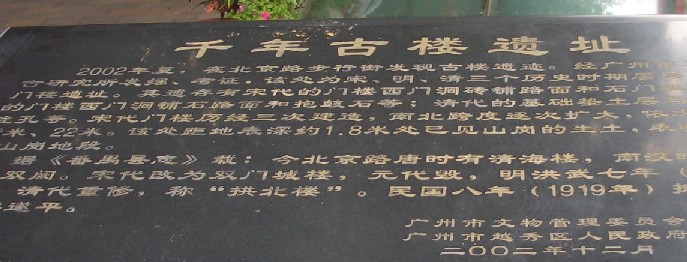 千年古楼遗址
2002年夏，在北京路步行街发现古楼遗迹。经广州
合研究所发掘、考证，该处为宋、明、清三个历史时期层
门楼遗址，其遗存有宋代的门楼西门洞砖铺路面和石门
的门楼西门洞铺石路面和抱鼓石等；清代的基础垫土层
柱孔等。宋代门楼历经三次建造，南北跨度逐次扩大，依次
米、22米。该处距地表深约1.8米处已见山岗的生土，
山岗地段。
据《番禺县志》载：今北京路唐时有清海楼，南汉时
双阙。宋代改为双门城楼，元代毁，明洪武七年（
清代重修，称“拱北楼”。民国八年（1919年）
遂平。
广州市文物管理委员会
广州市越秀区人民政府
二〇〇二年十二月